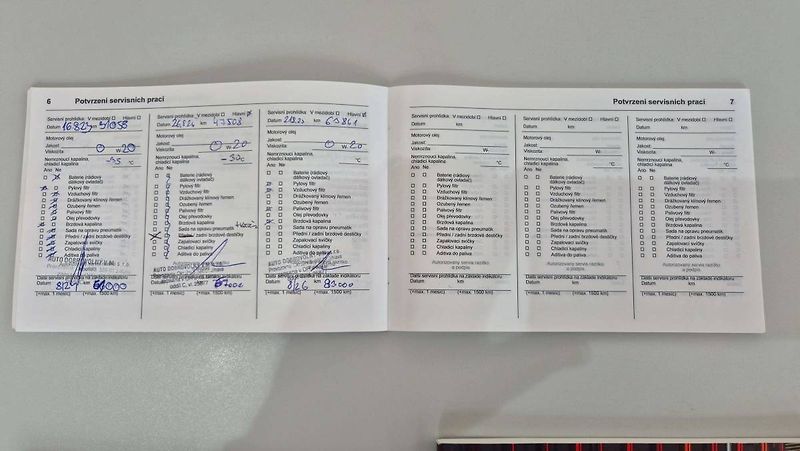 6 Potvrzení servisních prací
Servisní prohlídka: V mezidobí Hlavní
Datum 16.8.23 km 31058
Motorový olej
Jakost:
Viskozita 0 W- 20
Nemrznoucí kapalina,
chladicí kapalina -35 °C
Ano Ne
Baterie (rádiový
dálkový ovladač)
Pylový filtr
Vzduchový filtr
Drážkovaný klínový řemen
Ozubený řemen
Palivový filtr
Olej převodovky
Brzdová kapalina
Sada na opravu pneumatik
Přední / zadní brzdové destičky
Zapalovací svíčky
Chladicí kapalina
Aditiva do paliva
Další servisní prohlídka na základě indikátoru
Datum km
8/24
(+max. 1 měsíc) (+max. 1500 km)
Servisní prohlídka: V mezidobí Hlavní
Datum km 47503
Motorový olej
Jakost:
Viskozita 0 W- 20
Nemrznoucí kapalina,
chladicí kapalina
Ano Ne
Baterie (rádiový
dálkový ovladač)
Pylový filtr
Vzduchový filtr
Drážkovaný klínový řemen
Ozubený řemen
Palivový filtr
Olej převodovky
Brzdová kapalina
Sada na opravu pneumatik
Přední / zadní brzdové destičky
Zapalovací svíčky
Chladicí kapalina
Aditiva do paliva
Další servisní prohlídka na základě indikátoru
Datum km
(+max. 1 měsíc) (+max. 1500 km)
Servisní prohlídka: V mezidobí Hlavní
Datum km
Motorový olej
Jakost:
Viskozita 0 W- 20
Nemrznoucí kapalina,
chladicí kapalina °C
Ano Ne
Baterie (rádiový
dálkový ovladač)
Pylový filtr
Vzduchový filtr
Drážkovaný klínový řemen
Ozubený řemen
Palivový filtr
Olej převodovky
Brzdová kapalina
Sada na opravu pneumatik
Přední / zadní brzdové destičky
Zapalovací svíčky
Chladicí kapalina
Aditiva do paliva
Další servisní prohlídka na základě indikátoru
Datum km
8/26
(+max. 1 měsíc) (+max. 1500 km)
Potvrzení servisních prací 7
Servisní prohlídka: V mezidobí Hlavní
Datum km
Motorový olej
Jakost:
Viskozita W-
Nemrznoucí kapalina,
chladicí kapalina °C
Ano Ne
Baterie (rádiový
dálkový ovladač)
Pylový filtr
Vzduchový filtr
Drážkovaný klínový řemen
Ozubený řemen
Palivový filtr
Olej převodovky
Brzdová kapalina
Sada na opravu pneumatik
Přední / zadní brzdové destičky
Zapalovací svíčky
Chladicí kapalina
Aditiva do paliva
Autorizovaný servis razítko
a podpis
Další servisní prohlídka na základě indikátoru
Datum km
(+max. 1 měsíc) (+max. 1500 km)
Servisní prohlídka: V mezidobí Hlavní
Datum km
Motorový olej
Jakost:
Viskozita W-
Nemrznoucí kapalina,
chladicí kapalina °C
Ano Ne
Baterie (rádiový
dálkový ovladač)
Pylový filtr
Vzduchový filtr
Drážkovaný klínový řemen
Ozubený řemen
Palivový filtr
Olej převodovky
Brzdová kapalina
Sada na opravu pneumatik
Přední / zadní brzdové destičky
Zapalovací svíčky
Chladicí kapalina
Aditiva do paliva
Autorizovaný servis razítko
a podpis
Další servisní prohlídka na základě indikátoru
Datum km
(+max. 1 měsíc) (+max. 1500 km)
Servisní prohlídka: V mezidobí Hlavní
Datum km
Motorový olej
Jakost:
Viskozita W-
Nemrznoucí kapalina,
chladicí kapalina °C
Ano Ne
Baterie (rádiový
dálkový ovladač)
Pylový filtr
Vzduchový filtr
Drážkovaný klínový řemen
Ozubený řemen
Palivový filtr
Olej převodovky
Brzdová kapalina
Sada na opravu pneumatik
Přední / zadní brzdové destičky
Zapalovací svíčky
Chladicí kapalina
Aditiva do paliva
Autorizovaný servis razítko
a podpis
Další servisní prohlídka na základě indikátoru
Datum km
(+max. 1 měsíc) (+max. 1500 km)